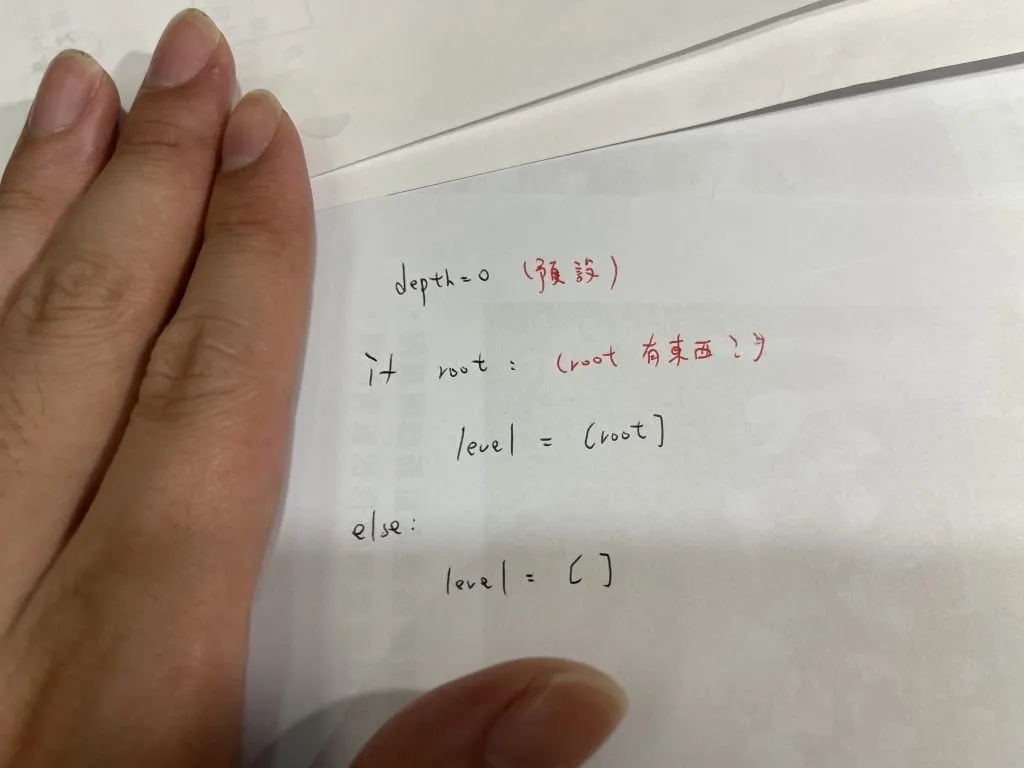 depth=0 (預設)
if root: (root 有東西)
level = [root]
else:
level = []